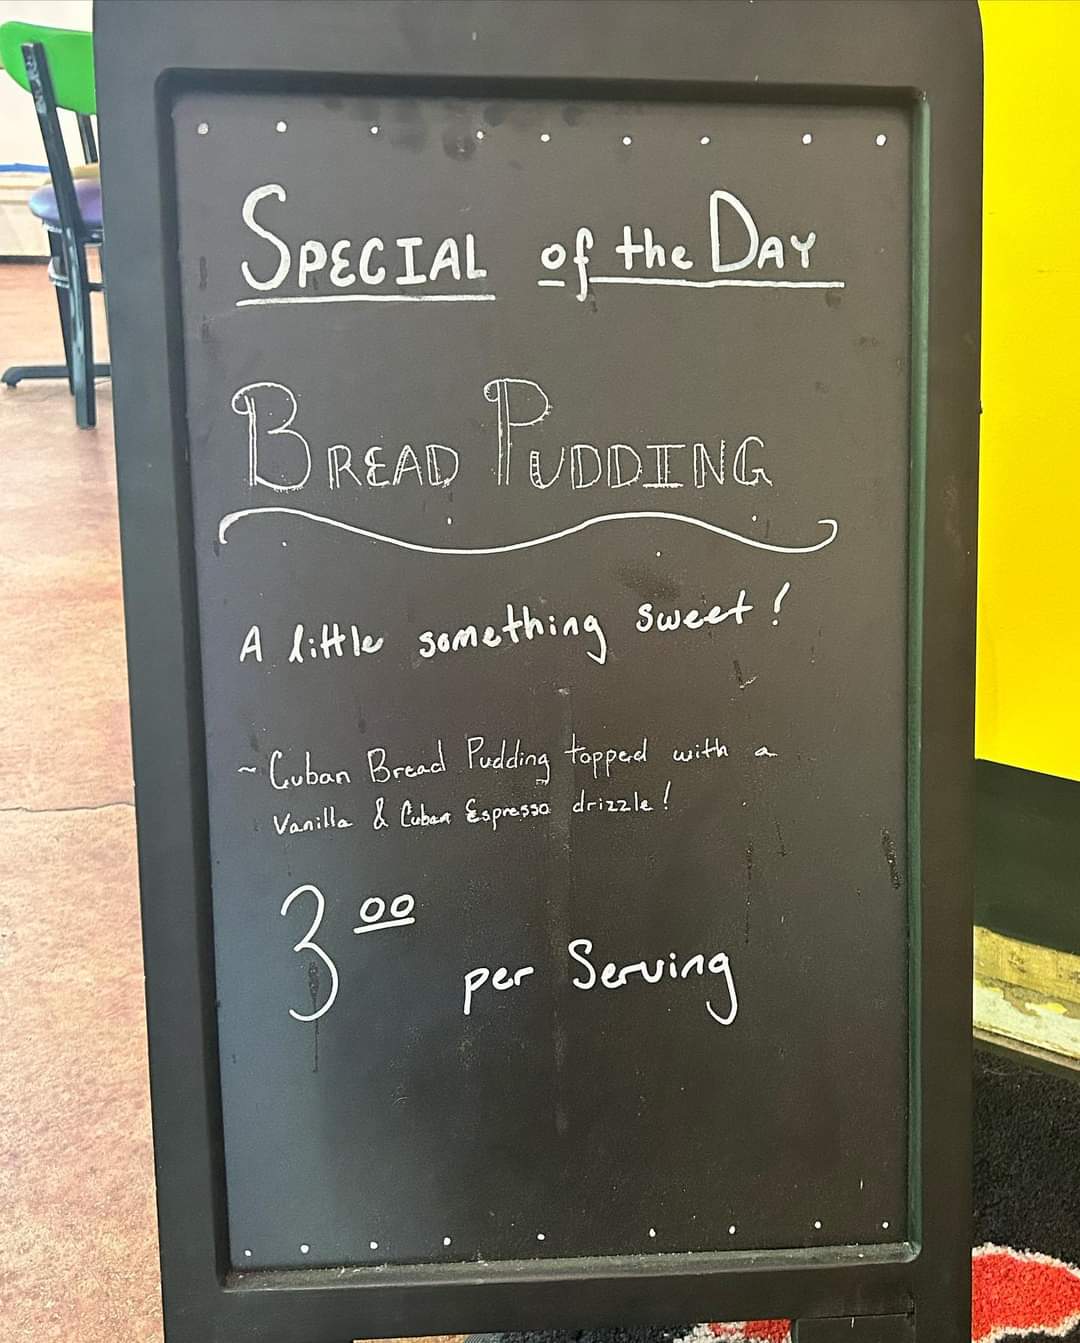 SPECIAL of the DAY
BREAD PUDDING
A little something sweet!
~ Cuban Bread Pudding topped with a
Vanilla & Cuban Espresso drizzle!
3 00 per Serving